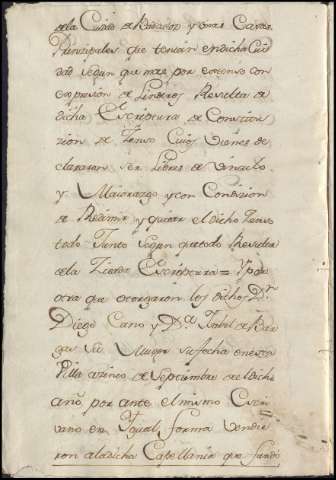 de la Ciudad de Badajoz y otras Casas
Principales que tenian en dicha Ciu
dad segun que mas por extenso con
expresion de Linderos Resulta de
dicha Escriptura de Constitu
zion de Zenso Cuios Vienes de
clararon ser Libres de Vinculo
y Maiorazgo y con Condizion
de Redimir y quitar el dicho Zenso
todo Junto segun que todo Resulta
de la Zitada Escriptura = Y por
otra que otorgaron los dichos Dn
Diego Cano y Da Isabel de Bar
gas su Muger su fecha en esta
Villa a zinco de Septiembre del dicho
año por ante el mismo Escri
vano en Igual forma vendie
ron a la dicha Capellania que fundo